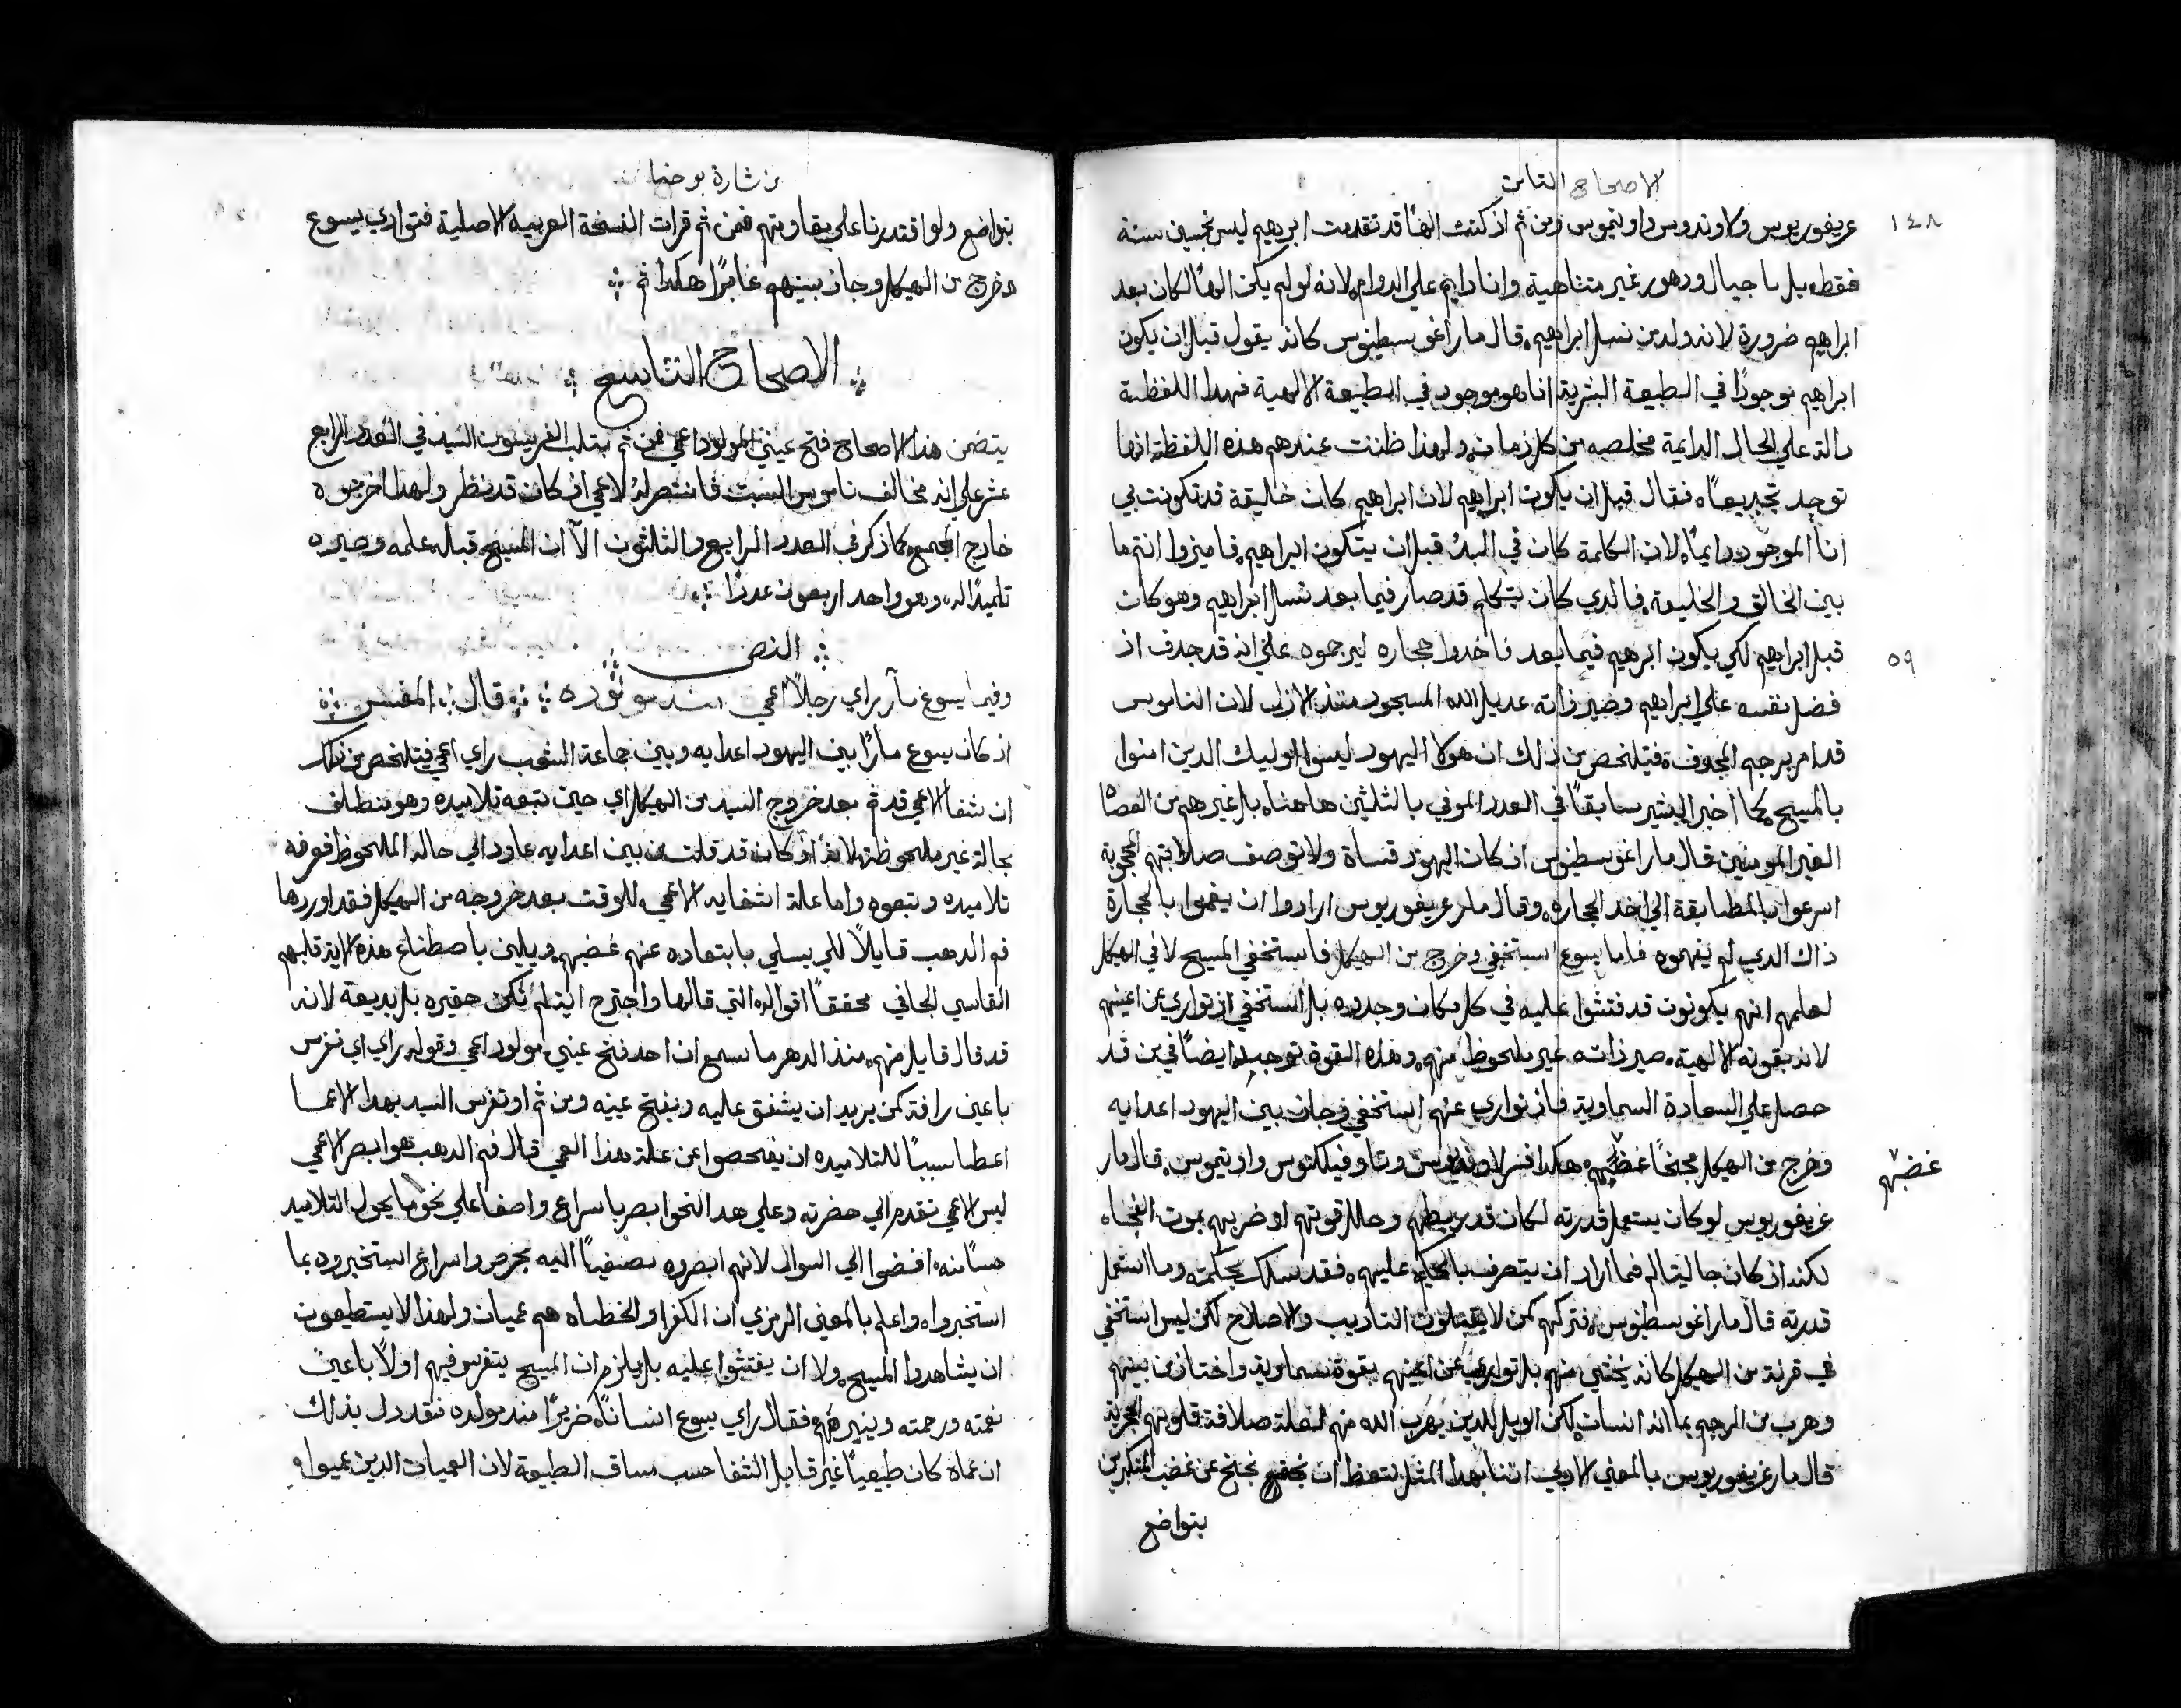 الاصحاح الثامن
١٤٨
غريغوريوس ولاوندوس واوتيموس ومن ثم اذ كنت الهًا قد تقدمت ابرهيم ليس بخمسين سنة
فقط بل باجيال ودهور غير متناهية وانا دايم علي الدوام لانه لو لم يكن الهًا لكان بعد
ابراهيم ضرورة لانه ولد من نسل ابراهيم قال مار اغوسطينوس كانه يقول قبل ان يكون
ابراهيم موجودًا في الطبيعة البشرية انا هو موجود في الطبيعة الالهية فهذا اللفظة
دالة علي الحال الدايمة مخلصه من كل زمان ولهذا ظننت عندهم هذه اللفظة انها
توجد تجديفًا فقال قبل ان يكون ابراهيم لان ابراهيم كان خاليقة قد تكونت بي
انا الموجود دايمًا لان الكلمة كان في البدُ قبل ان يتكون ابراهيم فاميزوا انتم ما
بين الخالق والخليقة فالدي كان يتكلم قد صار فيما بعد نسل ابراهيم وهو كان
قبل ابراهيم لكي يكون ابرهيم فيما بعد فاخدوا حجاره ليرجموه علي انه قد جدف اذ
٥٩
فضل نفسه علي ابراهيم وصير ذاته عديل الله المسجود منذ الازل لان الناموس
قد امر برجم المجدف فيتلخص من ذلك ان هولا اليهود ليسوا اوليك الدين امنوا
بالمسيح كما اخبر البشير سابقًا في العدد الموفي بالثلثين هاهنا بل غيرهم من العصاا
الغير المومنين قال مار اغوسطينوس اذ كان اليهود قساة ولا توصف صلابتهم الحجرية
اسرعوا بالمطابقة الي اخد الحجاره وقال مار غريغوريوس ارادوا ان يغموا بالحجارة
ذاك الدي لم يفهموه فاما يسوع استخفي وخرج من الهيكل فاستخفي المسيح لا في الهيكل
لعلمهم انهم يكونون قد فتشوا عليه في كل مكان وجدوه بل استخفي اذ تواري عن اعينهم
لانه بقوته الالهية صير ذاته غير ملحوظ منهم وهذه القوة توجد ايضًا في من قد
حصل علي السعادة السماوية فاذ تواري عنهم استخفي وجاز بين اليهود اعدايه
وخرج من الهيكل مجنحًا غضبهم هكدا فسر لاونديوس وثاوفيلكتوس واوتيموس قال مار
غضبهم
غريغوريوس لو كان يستعمل قدرته لكان قد ربطهم وحلل قوتهم او ضربهم بموت الفجاه
لكنه اذ كان جا ليتالم فما اراد ان يتصرف بالحكم عليهم فقد سلك بحكمته وما استعمل
قدرته قال مار اغوسطينوس فتركهم كمن لا يقبلون التاديب والاصلاح لكن ليس استخفي
في قرنة من الهيكل كانه يختشي منهم بل تواري عن اعينهم بقوة سماوية واختاز من بينهم
وهرب من الرجم بما انه انسان لكن الويل للدين يهرب الله منهم لعلة صلافة قلوبهم الحجرية
قال مار غريغوريوس بالمعني الادبي اننا بهذا المثل نتعظ ان نجنح عن غضب المتكبرين
بتواضع
من بشارة يوحنا
بتواضع ولو اقتدرنا علي مقاومتهم فمن ثم قرات النسخة العربية الاصلية فتواري يسوع
وخرج من الهيكل وجاز بينهم عابرًا هكدا ثم
الاصحاح التاسع
يتضمن هذا الاصحاح فتح عيني المولود اعمي فمن ثم يثلب الفريسيون السيد في العدد الرابع
عشر علي انه مخالف ناموس السبت فانتصر له الاعمي اذ كان قد نظر ولهذا اخرجوه
خارج المجمع كما ذكر في العدد الرابع والثلثون الا ان المسيح قبله وعلمه وصيره
تلميدًا له وهو واحد اربعون عددًا
النص
وفيما يسوع مار راي رجلًا اعمي منذ مولوده قال المفسر
اذ كان يسوع مارًا بين اليهود اعدايه وبين جماعة الشعب راي اعمي فيتلخص من ذلك
ان شفا الاعمي قد تم بعد خروج السيد من الهيكل اي حين تبعه تلاميده وهو منطلق
بحالة غير ملحوظة لانه اذ كان قد فلت من بين اعدايه عاود الي حاله الملحوظ فعرفه
تلاميده وتبعوه واما علة اشفايه الاعمي للوقت بعد خروجه من الهيكل فقد اوردها
فم الدهب قايلًا لكي يسلي بابتعاده عنهم غضبهم ويلين باصطناع هذه الاية قلبهم
القاسي الجافي محققًا اقواله التي قالها واجترح اية لم تكن حقيره بل بديعة لانه
قد قال قايل منهم منذ الدهر ما سمع ان احد فتح عيني مولود اعمي وقوله راي اي تفرس
باعين رافة كمن يريد ان يشفق عليه ويفتح عينه ومن ثم اوتفرس السيد بهدا الاعما
اعطا سببًا للتلاميده ان يفحصوا عن علة هذا العمي قال فم الدهب هو ابصر الاعمي
ليس الاعمي تقدم الي حضرته وعلي هدا النحو ابصر باسراع واصفا علي نحو ما يحول التلاميد
حسًا منه افضوا الي السوال لانهم ابصروه مصغيًا اليه بحرص واسراع استخبروه بما
استخبروا واعلم بالمعني الرمزي ان الكفرا والخطاه هم عميان ولهذا لا يستطيعون
ان يشاهدوا المسيح ولا ان يفتشوا عليه بل يلزم ان المسيح يتفرس فيهم اولًا باعين
نعمته ورحمته وينيرهم فقال راي يسوع انسانًا ضريرًا منذ مولده فقد دل بذلك
ان عماه كان طبيعيًا غير قابل الشفا حسب مساق الطبيعة لان العميان الدين عميوا